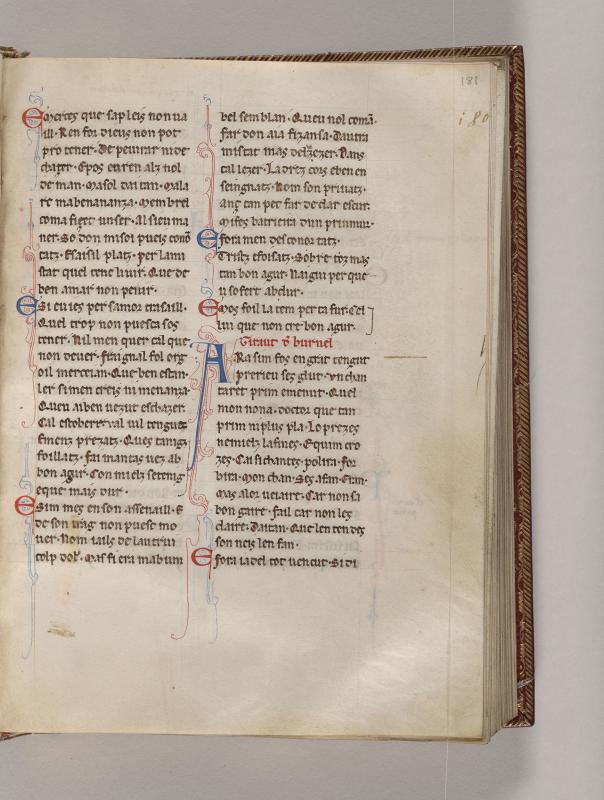 181
180
E merces que sapleis non ua
ill. Ren for dieus non pot
pro tener. De peurar ni de
chazer. E pos eu ren alz nol
deman. Masol dai tan. Mala
re mabenananza. Mem brel
coma fezet un ser. Al sieu ma
ner. So don misoi pueis cono
tatz. E saisil platz. per lami
stat quel tenc liurr. Que de
ben amar non peiur.
E si eu ies per samor trasaill.
Quel trop non puesca sos
tener. Nil men quer cal que
non deuer.
oil merceian. Que ben estan.
ler si men creis ni menanza.
Queu ai ben uezut eschazer.
Cal estobers val uil tengutz
E menz prezatz. Ques tangz
foillatz. Fai mantas uez ab
bon agur. Con mielz se teng
e que mais dur.
E sim mes en son assenaill. E
de son uiag non puesc mo
uer. Nom iails de lautrui
colp doler. Mas si era mab un
bel semblan. Queu nol coman
far don aia fizansa. Dautra
mistat mas delezer. Dans
tal lezer. La drez cors e ben en
seingnatz. Nom son priuatz.
anz tan per far de clar escur.
Mi fes batrieira dun prim mur.
E fora men desconortatz.
Tristz e foisatz. Sobre toz mas
tan bon agur. Nai gui per que
u sofert abdur.
E mos foil la tem per ta fur. Cel
lui que non cre bon agur.
Giraut de burnel
A Ra sim fos en grat tengut
a prerieu ses glut. Un chan
taret prim e menut. Quel
mon non a. doctor que tan
prim ni plus pla. Lo prezes
ni mielz lafines. E qui m cro
zes. Cai si chantes. polira. For
bira. Mon chan. Ses afan. Gran.
Mas alor ueiaire. Car non sa
bon gaire. fail car non les
claire. Daitan. Que len tendes
son neis len fan.
E fora ia del tot uencut. Si di